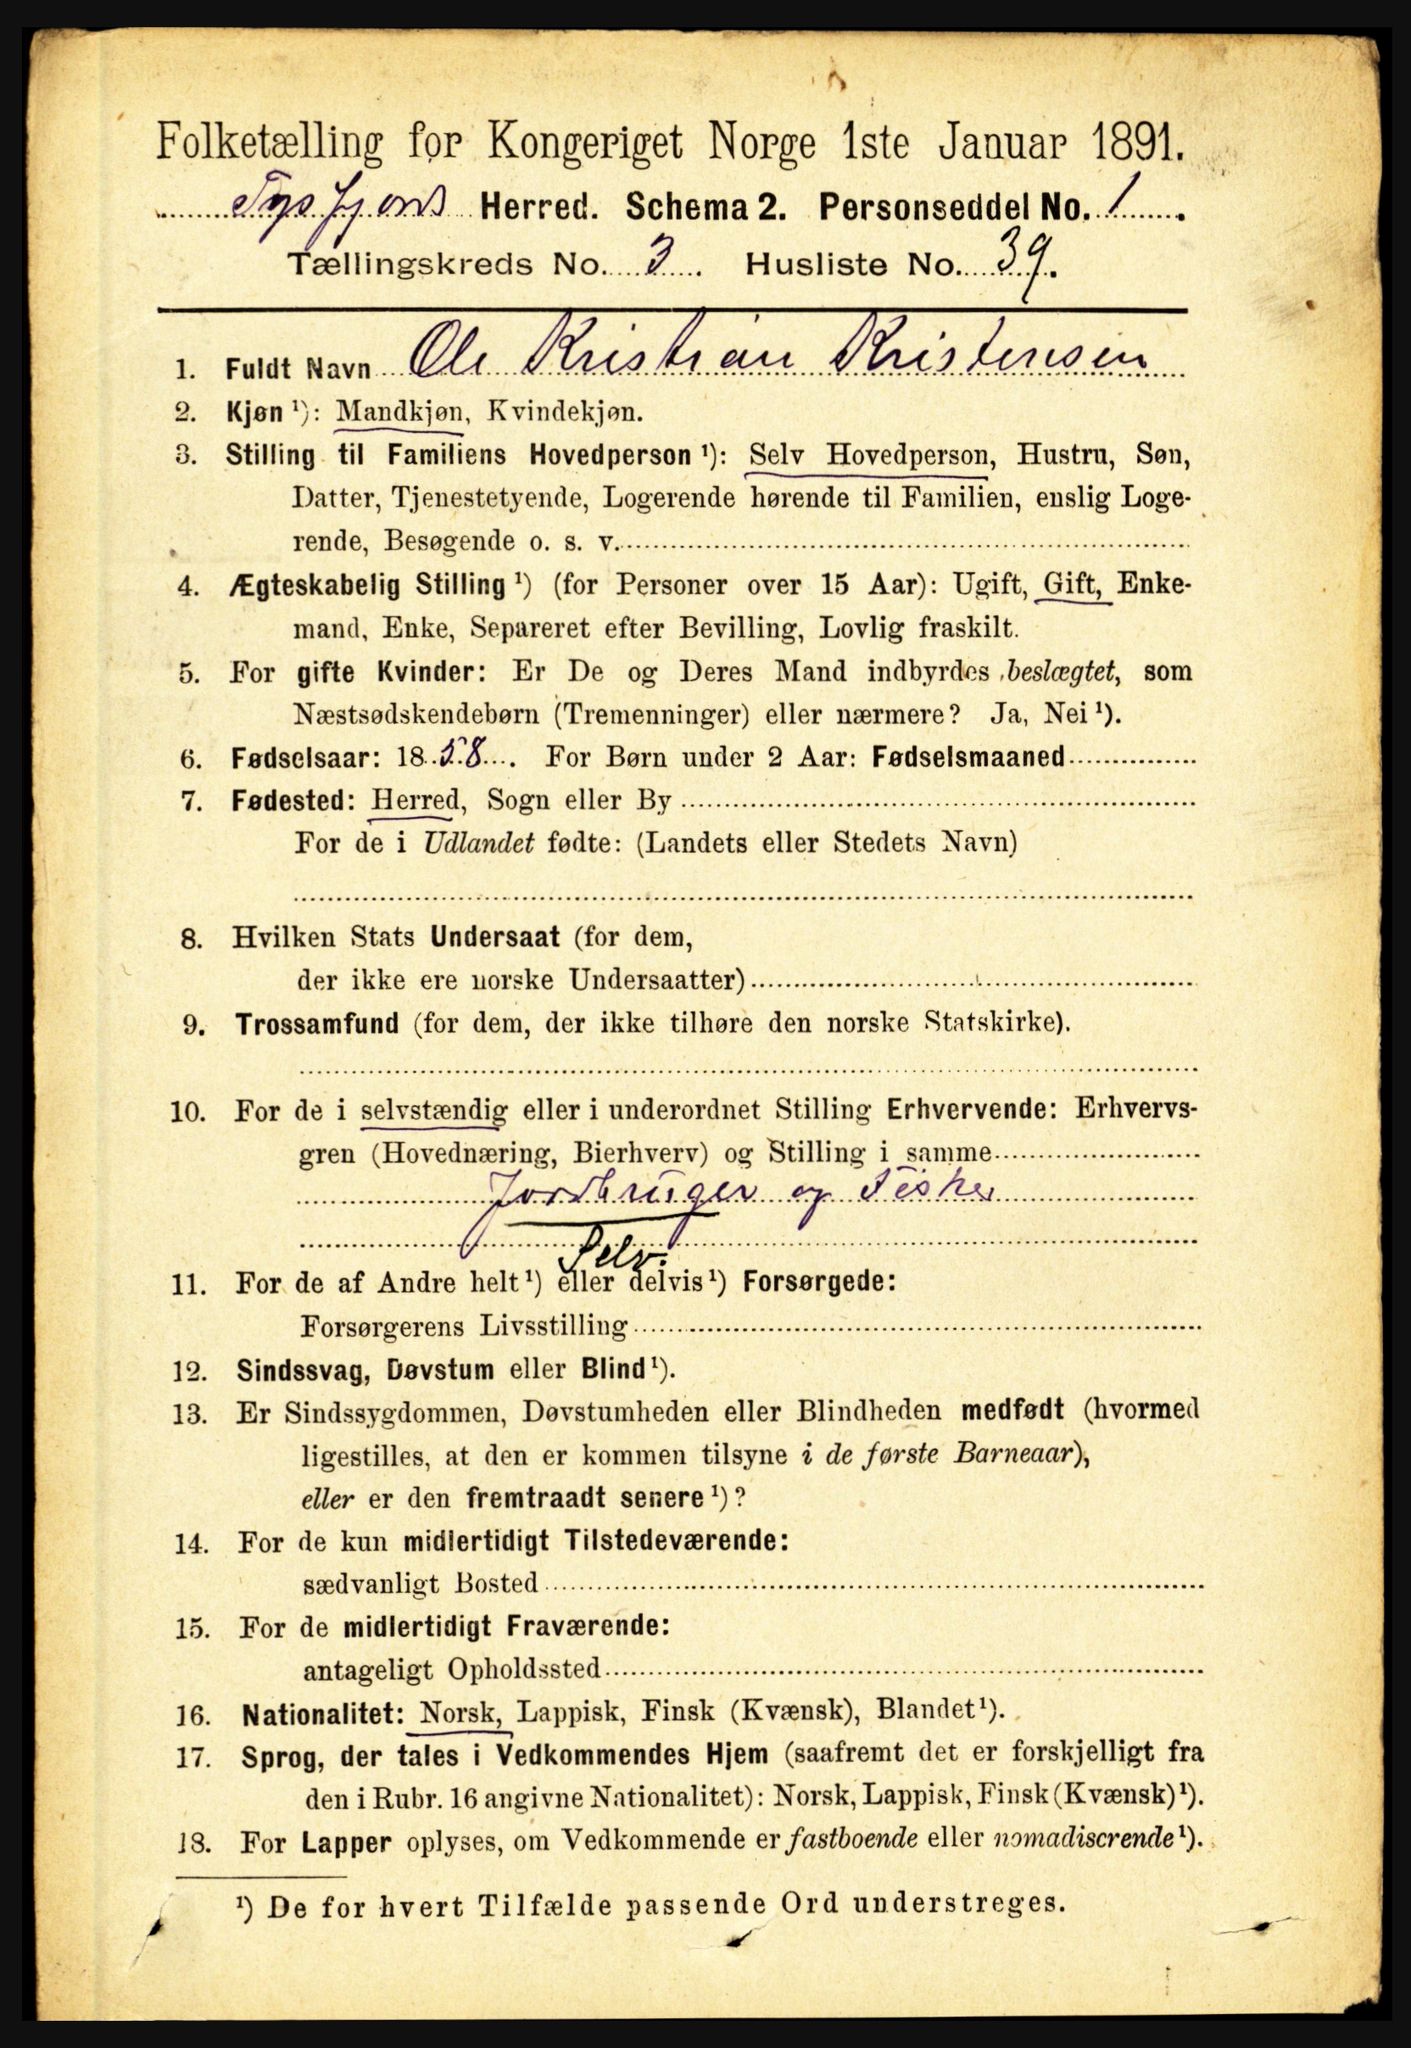 Folketælling for Kongeriget Norge 1ste Januar 1891.
Tysfjord Herred. Schema 2. Personseddel No. 1.
Tællingskreds No. 3. Husliste No. 39.
1. Fuldt Navn Ole Kristian Kristensen
2. Kjøn ¹): Mandkjøn, Kvindekjøn.
3. Stilling til Familiens Hovedperson ¹): Selv Hovedperson, Hustru, Søn,
Datter, Tjenestetyende, Logerende hørende til Familien, enslig Loge-
rende, Besøgende o. s. v.
4. Ægteskabelig Stilling ¹) (for Personer over 15 Aar): Ugift, Gift, Enke-
mand, Enke, Separeret efter Bevilling, Lovlig fraskilt.
5. For gifte Kvinder: Er De og Deres Mand indbyrdes beslægtet, som
Næstsødskendebørn (Tremenninger) eller nærmere? Ja, Nei ¹).
6. Fødselsaar: 1858. For Børn under 2 Aar: Fødselsmaaned
7. Fødested: Herred, Sogn eller By
For de i Udlandet fødte: (Landets eller Stedets Navn)
8. Hvilken Stats Undersaat (for dem,
der ikke ere norske Undersaatter)
9. Trossamfund (for dem, der ikke tilhøre den norske Statskirke).
10. For de i selvstændig eller i underordnet Stilling Erhvervende: Erhvervs-
gren (Hovednæring, Bierhverv) og Stilling i samme
Jordbruger og Fisker
Selv.
11. For de af Andre helt ¹) eller delvis ¹) Forsørgede:
Forsørgerens Livsstilling
12. Sindssvag, Døvstum eller Blind ¹).
13. Er Sindssygdommen, Døvstumheden eller Blindheden medfødt (hvormed
ligestilles, at den er kommen tilsyne i de første Barneaar),
eller er den fremtraadt senere ¹)?
14. For de kun midlertidigt Tilstedeværende:
sædvanligt Bosted
15. For de midlertidigt Fraværende:
antageligt Opholdssted
16. Nationalitet: Norsk, Lappisk, Finsk (Kvænsk), Blandet ¹).
17. Sprog, der tales i Vedkommendes Hjem (saafremt det er forskjelligt fra
den i Rubr. 16 angivne Nationalitet): Norsk, Lappisk, Finsk (Kvænsk) ¹).
18. For Lapper oplyses, om Vedkommende er fastboende eller nomadiserende ¹).
¹) De for hvert Tilfælde passende Ord understreges.